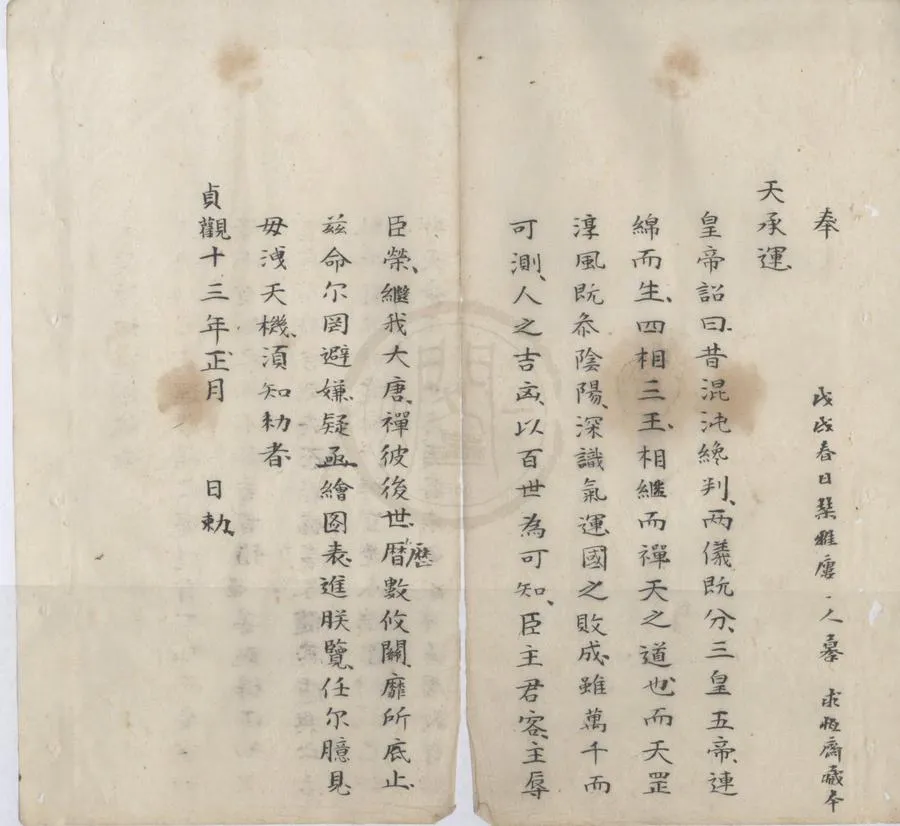 奉 戊戌春日 雅廔 人摹 求恆齋藏本
天承運
皇帝詔曰、昔混沌纔判、兩儀既分、三皇五帝、連
綿而生、四相三王、相繼而禪天之道也、而天罡
淳風既叅陰陽、深識氣運國之敗成、雖萬千而
可測、人之吉㐫、以百世為可知、臣主君容、主辱
臣榮、繼我大唐、禪彼後世、曆數攸關、靡所底止、
歷
茲命尔罔避嫌疑、亟繪圖表進朕覽、任尔臆見
毋洩天機、須知勅者
貞觀十三年正月 日勅